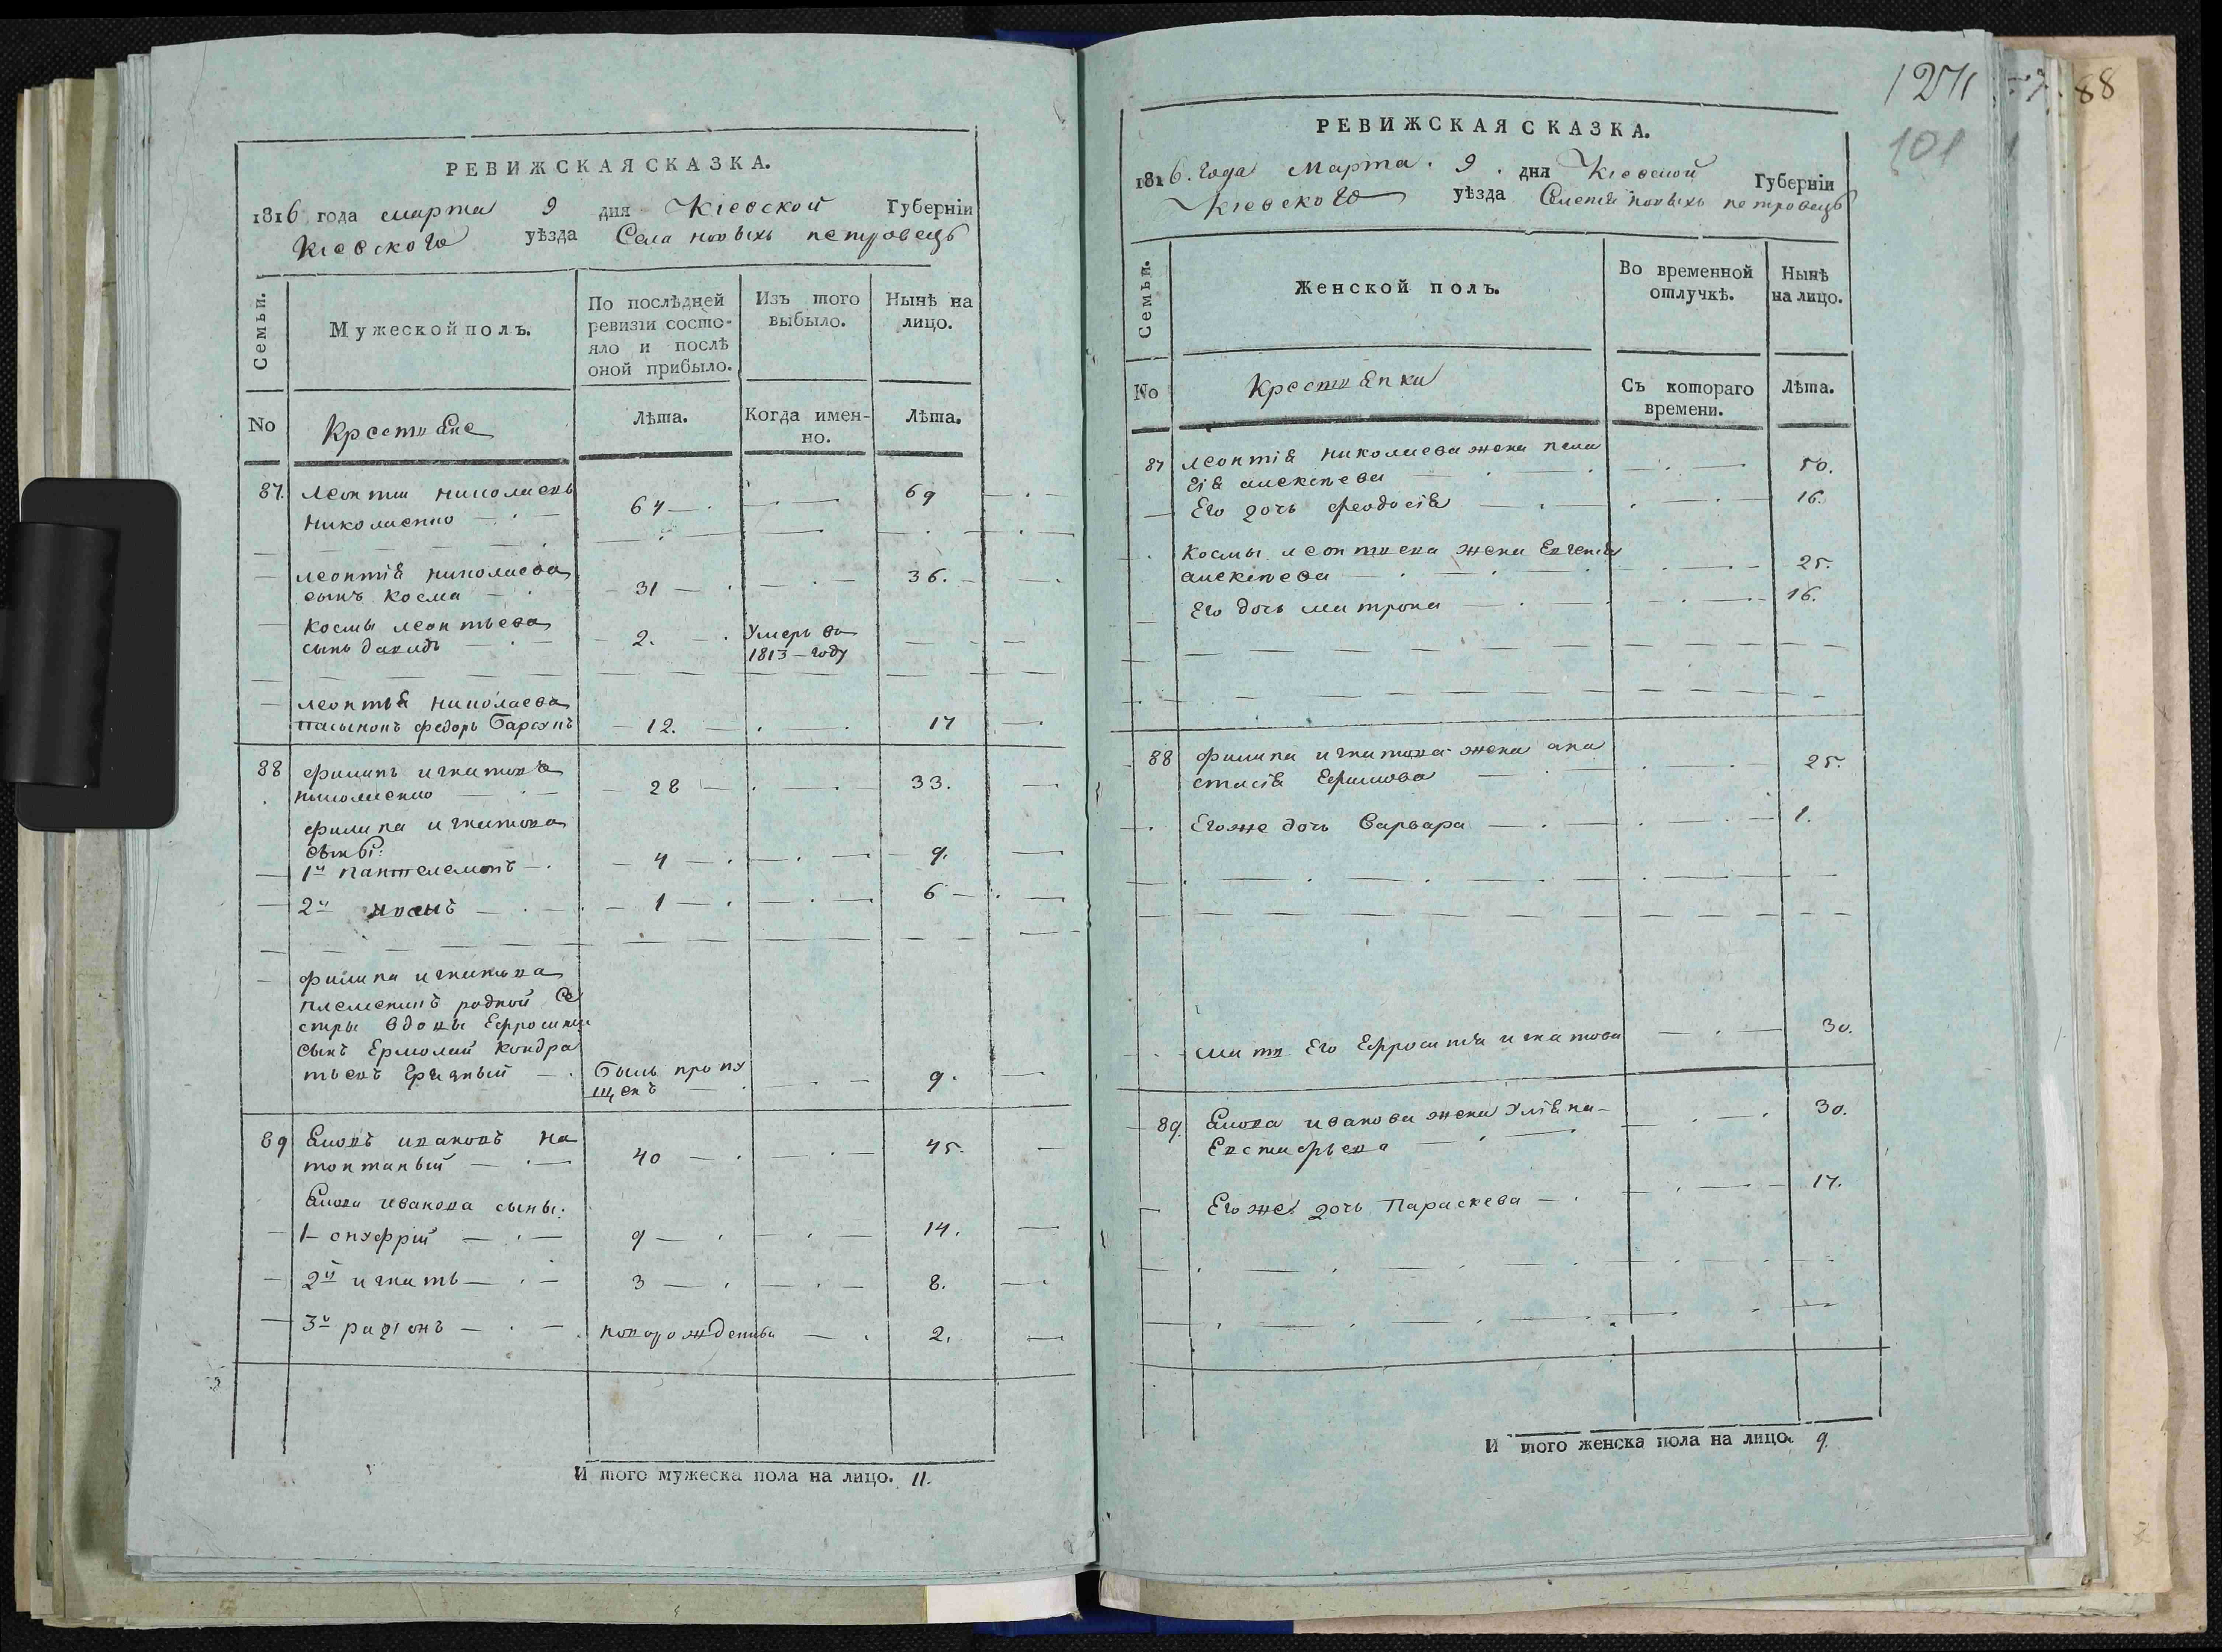 РЕВИЖСКАЯ СКАЗКА.
1816 года марта 9 дня Кіевской Губерніи
Кіевского уѣзда Села новыхъ петровецъ
Семьи.
Мужеской полъ.
По послѣдней ревизіи состояло и послѣ оной прибыло.
Изъ того выбыло.
Нынѣ на лицо.
No
Крестьяне
Лѣта.
Когда именно.
Лѣта.
87. Леонтий николаевъ
николаенко 64 69
леонтія николаева
сынъ косма 31 36.
космы леонтьева Умеръ во
сынъ давидъ 2. 1813 году
леонтья николаева
пасынокъ федоръ 12. 17
88 филипъ игнатовъ
николаенко 28 33.
филипа игнатова
сыны:
1й пантелемонъ 4 9.
2й иванъ 1 6
филипа игнатова
племеникъ родной се
стры вдовы Ефросини
сынъ Ермолай кондра
тьевъ Былъ пропу
щенъ 9.
89 ивановъ на
топтаный 40 45.
иванова сыны:
1 онуфрій 9 14.
2й игнатъ 3 8.
3й радіонъ новорожденный 2.
И того мужеска пола на лицо. 11.
1271 88
101
РЕВИЖСКАЯ СКАЗКА.
1816. года марта 9 дня Кіевской Губерніи
Кіевского уѣзда Селенія новыхъ петровецъ
Семьи.
Женской полъ.
Во временной отлучкѣ.
Нынѣ на лицо.
No
Крестьянки
Съ котораго времени.
Лѣта.
87 леонтія николаева жена пела
гія алексѣева 50.
Его дочь феодосія 16.
космы леонтьева жена Евгенія
алексѣева 25.
Его дочь матрона 16.
88 филипа игнатова жена ана
стасія Ефимова 25.
Егоже дочь варвара 1.
мать Его Ефросинія игнатова 30.
89. иванова жена Уліяна
Евстафьева 30.
Егоже дочь Параскева 17.
И того женска пола на лицо. 9.